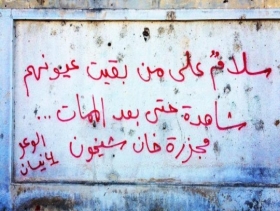 سلامٌ على من بقيت عيونهم
شاهدة حتى بعد الممات ...
مجزرة خان شيخون
الوعر
٤ نيسان